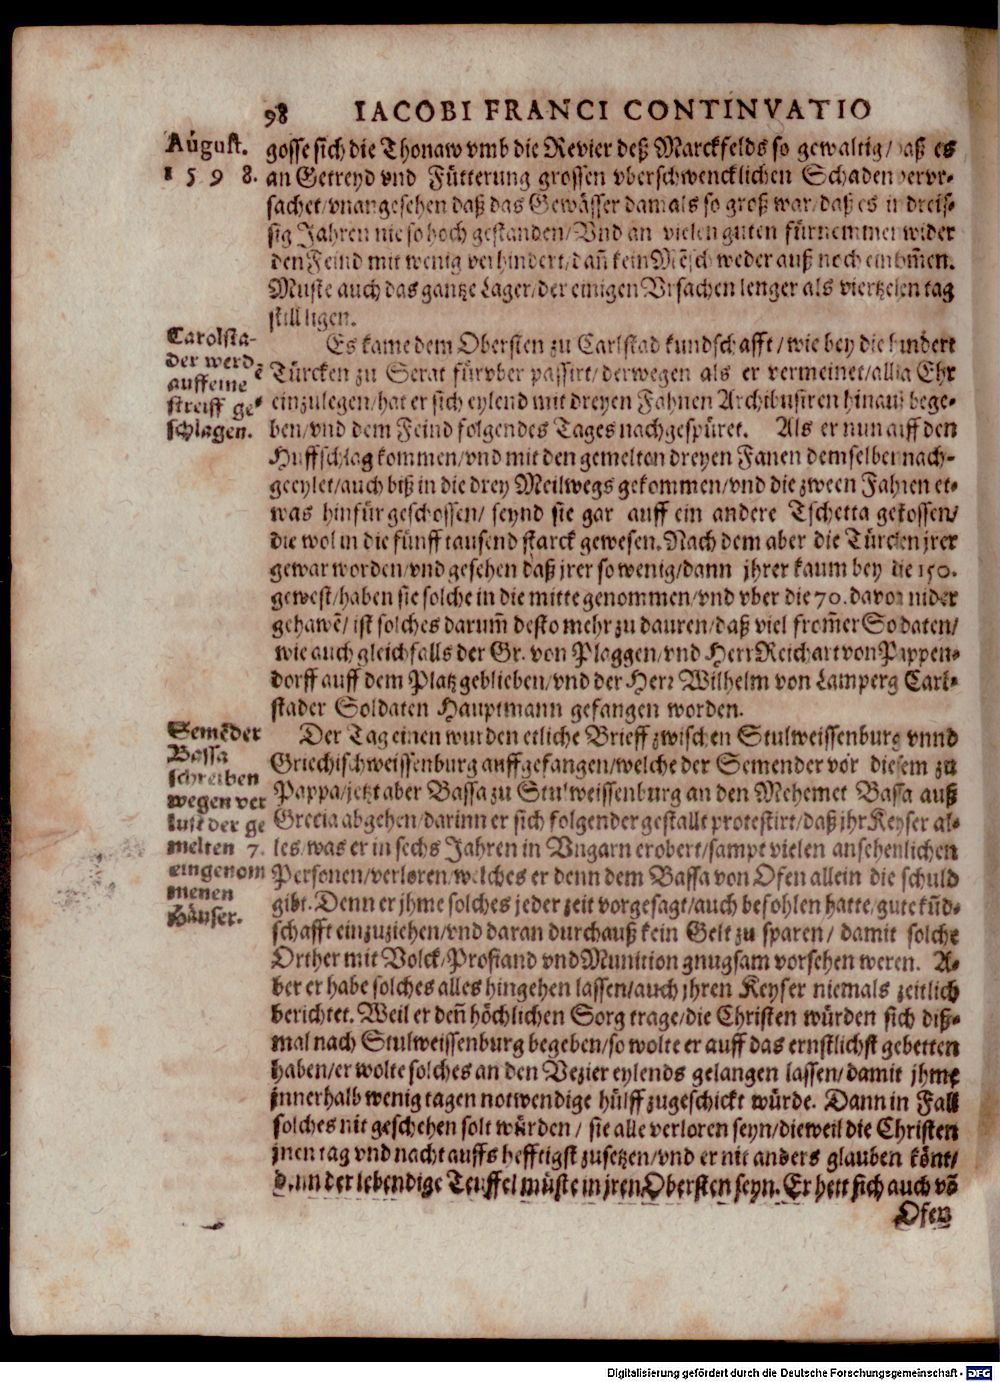 98 IACOBI FRANCI CONTINVATIO
August.
1 5 9 8.
gosse sich die Thonaw vmb die Revier deß Marckfelds so gewaltig/ daß es
an Getreyd vnd Fütterung grossen vberschwencklichen Schaden vervr-
sachet/vnangesehen daß das Gewässer damals so groß war/daß es in dreis-
sig Jahren nie so hoch gestanden/Vnd an vielen guten fürnemmen wider
den Feind mit wenig verhindert/dañ kein Mẽsch weder auß noch ein
Muste auch das gantze Lager/der einigen Vrsachen lenger als viertzehen tag
still ligen.
Carolsta-
der werdẽ
auff eine
streiff ge-
schlagen.
Es kame dem Obersten zu Carlstad kundschafft/ wie bey die hundert
Türcken zu Serat fürvber passirt/derwegen als er vermeinet/allda Ehr
einzulegen/hat er sich eylend mit dreyen Fahnen Archibusiren hinauß bege-
ben/vnd dem Feind folgendes Tages nachgespüret. Als er nun auff den
Huffschlag kommen/vnd mit den gemelten dreyen Fanen demselben nach-
geeylet/auch biß in die drey Meilwegs gekommen/vnd die zween Fahnen et-
was hinfür geschossen/ seynd sie gar auff ein andere Tschetta gestossen/
die wol in die fünff tausend starck gewesen. Nach dem aber die Türcken jrer
gewar worden/vnd gesehen daß jrer so wenig/dann jhrer kaum bey die 150.
gewest/haben sie solche in die mitte genommen/vnd vber die 70. davon nider
gehawẽ/ ist solches darum̃ desto mehr zu dauren/daß viel from̃er Soldaten/
wie auch gleichfalls der Gr. von Plaggen/vnd Herr Reichart von Pappen-
dorff auff dem Platz geblieben/vnd der Herr Wilhelm von Lamperg Carl-
stader Soldaten Hauptmann gefangen worden.
Semẽder
Bassa
schreiben
wegen ver
lust der ge
melten 7.
eingenom
menen
Häuser.
Der Tag einen wurden etliche Brieff zwischen Stulweissenburg vnnd
Griechischweissenburg auffgefangen/welche der Semender vor diesem zu
Pappa/jetzt aber Bassa zu Stulweissenburg an den Mehemet Bassa auß
Grecia abgehen/darinn er sich folgender gestallt protestirt/daß jhr Keyser al-
les/was er in sechs Jahren in Vngarn erobert/sampt vielen ansehenlichen
Personen/verloren/welches er denn dem Bassa von Ofen allein die schuld
gibt. Denn er jhme solches jeder zeit vorgesagt/auch befohlen hatte/gute kũd-
schafft einzuziehen/vnd daran durchauß kein Gelt zu sparen/ damit solche
Orther mit Volck/Profiand vnd Munition gnugsam vorsehen weren. A-
ber er habe solches alles hingehen lassen/auch jhren Keyser niemals zeitlich
berichtet. Weil er deñ höchlichen Sorg trage/die Christen würden sich diß-
mal nach Stulweissenburg begeben/so wolte er auff das ernstlichst gebetten
haben/er wolte solches an den Vezier eylends gelangen lassen/damit jhme
jnnerhalb wenig tagen notwendige hülff zugeschickt würde. Dann in Fall
solches nit geschehen solt würden/ sie alle verloren seyn/dieweil die Christen
jnen tag vnd nacht auffs hefftigst zusetzen/vnd er nit anders glauben könt/
dann der lebendige Teuffel müste in jren Obersten seyn. Er hett sich auch võ
Ofen
Digitalisierung gefördert durch die Deutsche Forschungsgemeinschaft - DFG